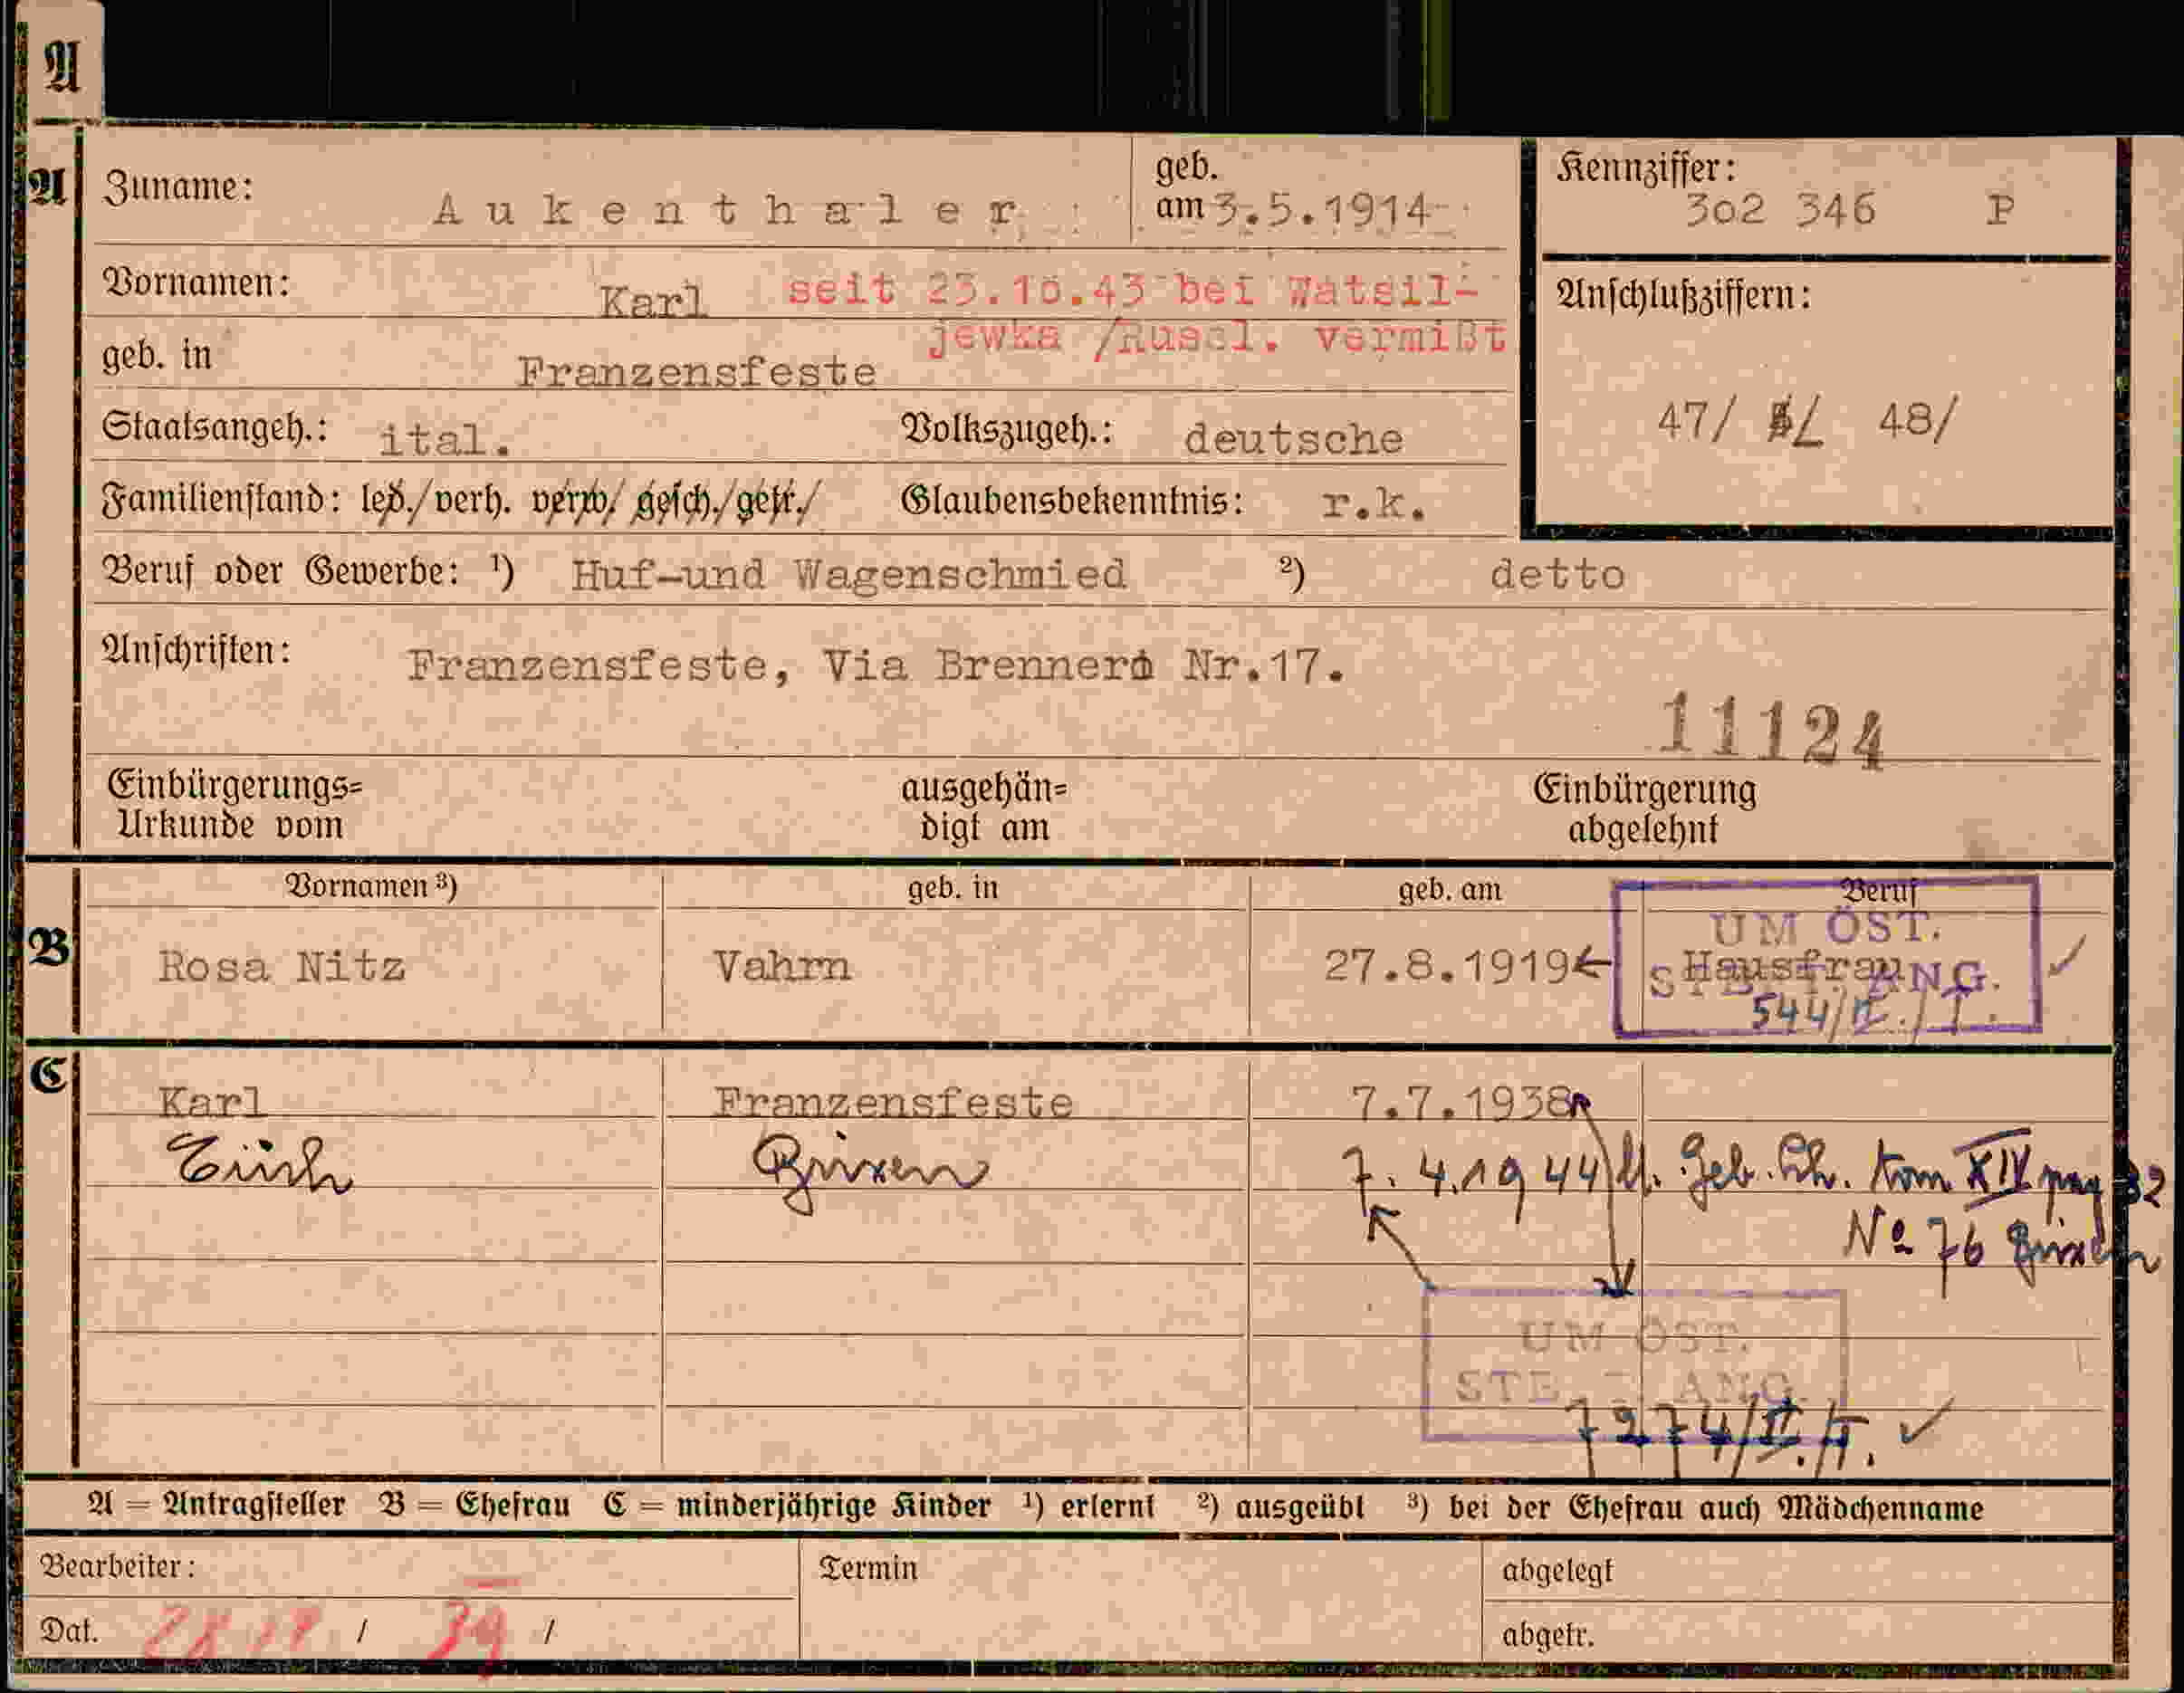 A
A
Zuname: Aukenthaler
geb. am 3.5.1914
Kennziffer: 302 346 P
Vornamen: Karl seit 23.10.43 bei Watsil-
jewka /Russl. vermißt
Anschlußziffern:
geb. in Franzensfeste
47/ 48/
Staatsangeh.: ital. Volkszugeh.: deutsche
Familienstand: led./verh. verw/ gesch./getr./ Glaubensbekenntnis: r.k.
Beruf oder Gewerbe: ¹) Huf-und Wagenschmied ²) detto
Anschriften: Franzensfeste, Via Brennero Nr.17.
11124
Einbürgerungs=
Urkunde vom
ausgehän=
digt am
Einbürgerung
abgelehnt
Vornamen ³) geb. in geb. am Beruf
B
UM ÖST.
Rosa Nitz Vahrn 27.8.1919 Hausfrau
ANG.
544/II./T.
C
Karl Franzensfeste 7.7.1938
Erich Brixen 7.4.1944 lt. Geb. Sch. Tom XIV pag 32
Nº 76 Brixen
UM ÖST.
STE ANG.
7274/II./T.
A = Antragsteller B = Ehefrau C = minderjährige Kinder ¹) erlernt ²) ausgeübt ³) bei der Ehefrau auch Mädchenname
Bearbeiter: Termin abgelegt
Dat. / 39 / abgetr.